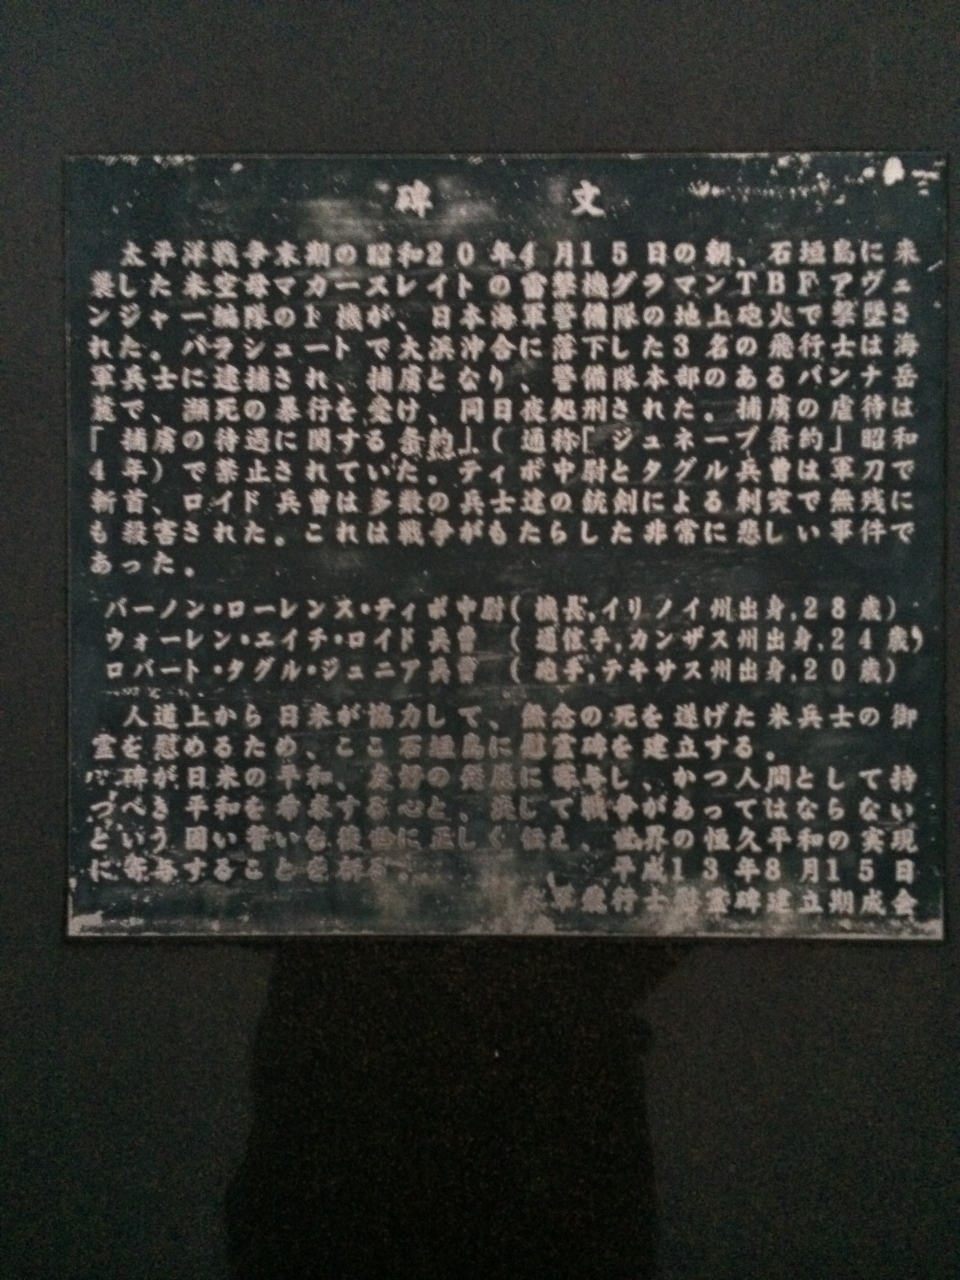 碑文
太平洋戦争末期の昭和20年4月15日の朝、石垣島に来
襲した米空母マカースレイトの雷撃機グラマンTBFアヴェ
ンジャー編隊の1機が、日本海軍警備隊の地上砲火で撃墜さ
れた。パラシュートで大浜沖合に落下した3名の飛行士は海
軍兵士に逮捕され、捕虜となり、警備隊本部のあるバンナ岳
麓で、瀕死の暴行を受け、同日夜処刑された。捕虜の虐待は
「捕虜の待遇に関する条約」(通称「ジュネーブ条約」昭和
4年)で禁止されていた。ティボ中尉とタグル兵曹は軍刀で
斬首、ロイド兵曹は多数の兵士達の銃剣による刺突で無残に
も殺害された。これは戦争がもたらした非常に悲しい事件で
あった。
バーノン・ローレンス・ティボ中尉(機長,イリノイ州出身,28歳)
ウォーレン・エイチ・ロイド兵曹(通信手,カンザス州出身,24歳)
ロバート・タグル・ジュニア兵曹(砲手,テキサス州出身,20歳)
人道上から日米が協力して、無念の死を遂げた米兵士の御
霊を慰めるため、ここ石垣島に慰霊碑を建立する。
碑が日米の平和、友好の発展に寄与し、かつ人間として持
つべき平和を希求する心と、決して戦争があってはならない
という固い誓いを後世に正しく伝え、世界の恒久平和の実現
に寄与することを祈る。平成13年8月15日
米軍飛行士慰霊碑建立期成会